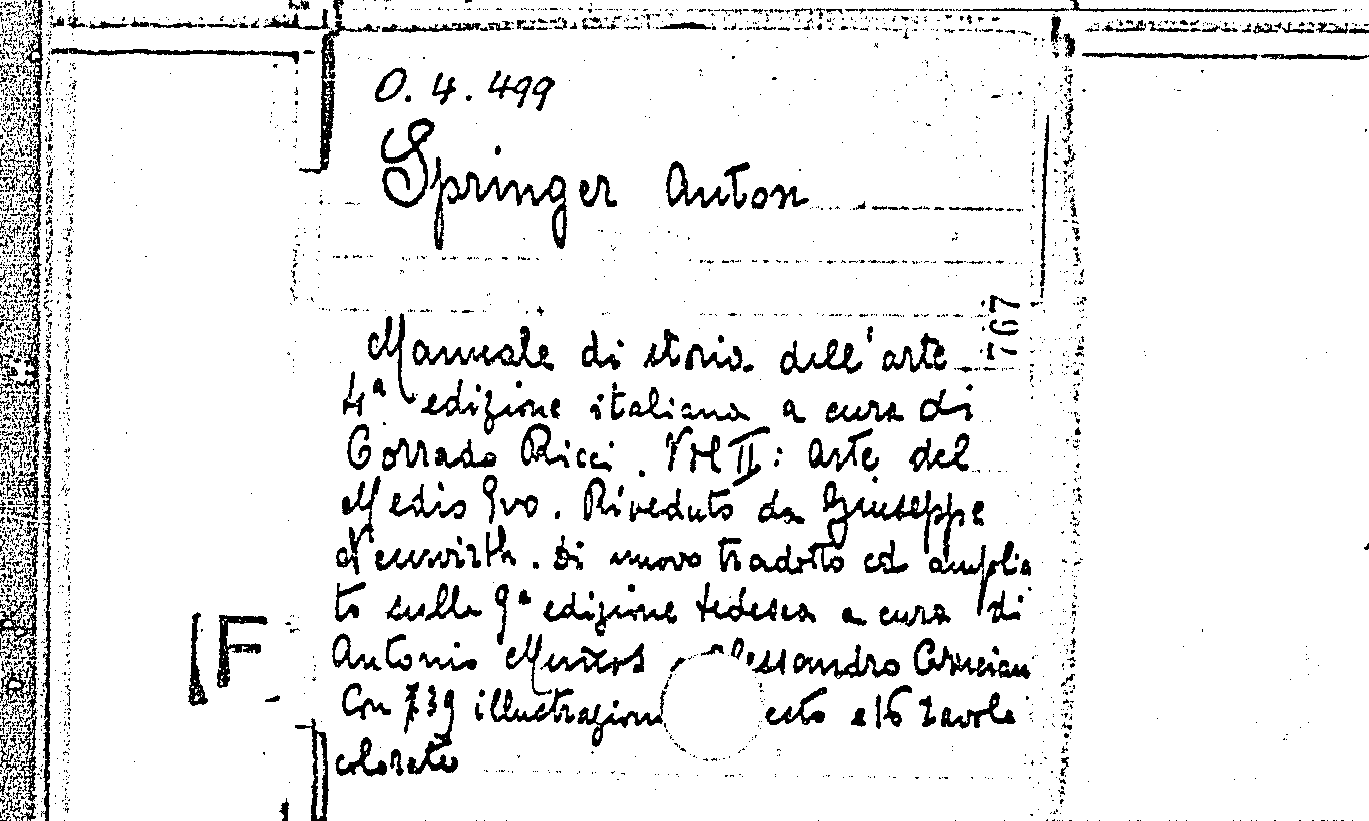 O. 4. 499
Springer Anton
767
Manuale di storia dell'arte
4ª edizione italiana a cura di
Corrado Ricci. Vol II: Arte del
Medio Evo. Riveduto da Giuseppe
Neuwirth. Di nuovo tradotto ed amplia
to sulla 9ª edizione tedesca a cura di
Antonio Muñoz Alessandro
Con 739 illustrazion esto e 16 tavole
colorate
F